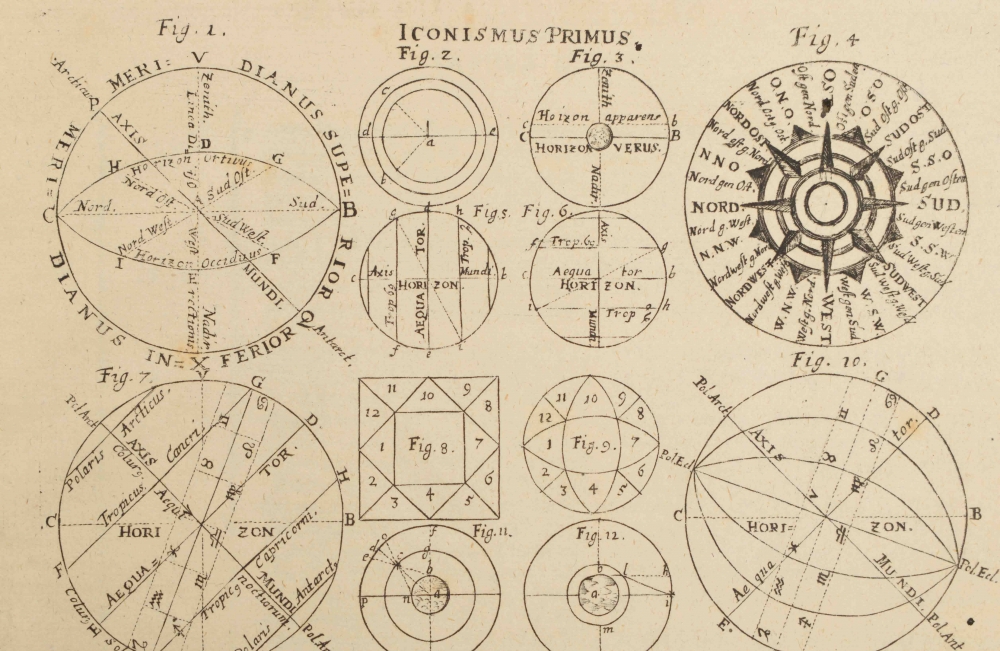 ICONISMUS PRIMUS.
Fig. 1.
MERI= V DIANUS SUPE=
RIOR
MERI=
DIANUS IN= X FERIOR
Arcticus
AXIS
Zenith
Linea Di
D
H
G
Horizon Ortivus
Nord Ost
Sud Ost
C
Nord.
Sud.
B
Nord West
Sud West.
West
I
Horizon Occiduus
F
E
rectionis
MUNDI
Nadir
Q
Antarct.
Fig. 2.
c
d
e
a
b
Fig. 3.
Zenith
Hoizon apparens
c
b
C
B
HORIZON VERUS.
Nadir
Fig. 4
OST
O S O
Sud Ost g. Ost
SUD OST
Sud Ost g. Sud
S. S. O
Sud gen Osten
SUD.
Sud gen Westen
S. S. W
Sud West g. Sud
SUDWEST
W. S. W.
West gen Sud
WEST
West g. Nord
W. N. W.
Nordwest g. West
NORDWEST
Nordwest g. Nord
N. N. W.
Nord g. West.
NORD
Nord gen Ost.
NNO
Nord Ost g. Nord
NORDOST
Nord Ost g. Ost
O. N. O.
Ost gen Nord
Ost gen Suden
Fig 5.
g
d
h
TOR.
Trop.
c
Axis
Mundi
b
HORIZON.
Trop
AEQUA
f
e
i
Fig. 6.
Axis
Trop.
g
c
Aequa tor
b
HORIZON.
i
Trop
h
Mundi
Fig. 7.
G
Pol Arct
Arcticus,
D.
AXIS
Cancri
TOR.
Polaris
Colurg
H
Tropicus.
Aequi
C
HORI ZON
B
Capricorni.
F
AEQUA=
MUNDI
Antarct,
Tropic
noctiorum
Colurg
Polaris
Pol. An
11 10 9
12 8
1 Fig. 8. 7
2 6
3 4 5
11 10 9
12 8
1 Fig. 9. 7
2 6
3 4 5
Fig. 10.
G
Pol. Arct
D
tor.
AXIS
Pol. Ecl
C
HORI= ZON.
B
Pol. Ecl.
Aequa
MUNDI
E.
Pol. Ant
Fig. 11.
f
g
e
b
p
n
a
Fig. 12.
b
l
h
a
i
m